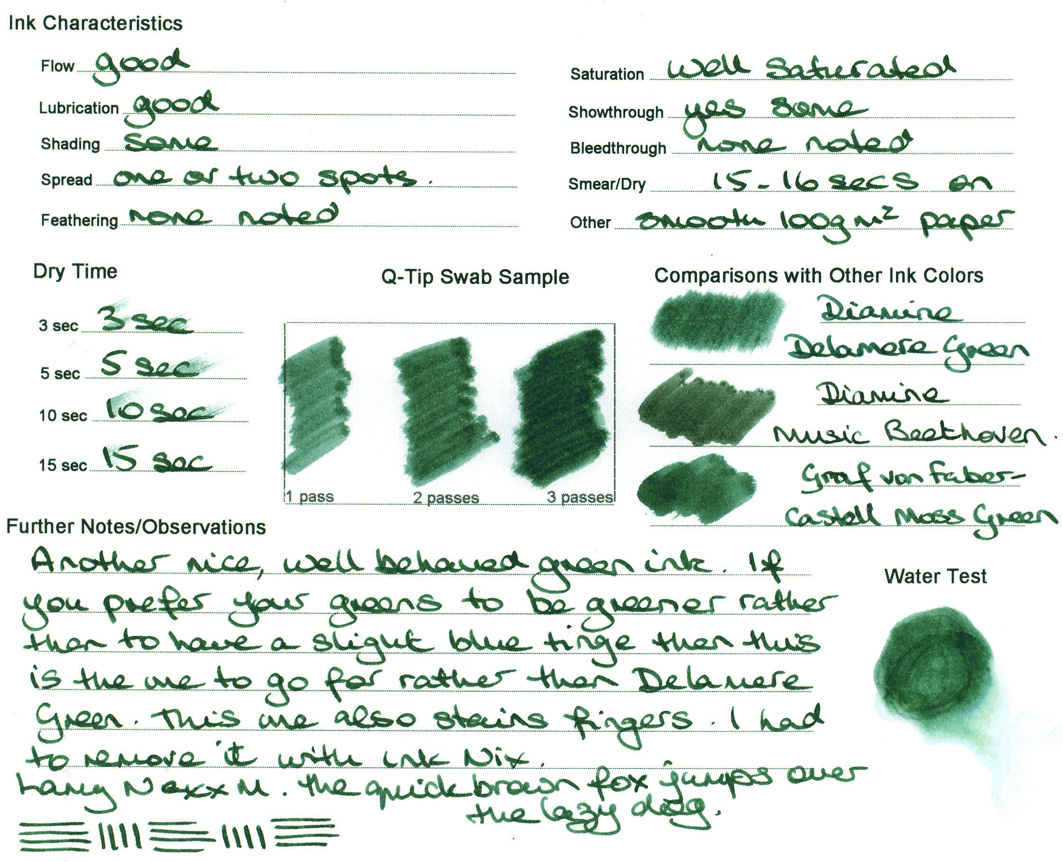 Ink Characteristics
Flow good
Lubrication good
Shading some
Spread one or two spots.
Feathering none noted
Saturation well saturated
Showthrough yes some
Bleedthrough none noted
Smear/Dry 15-16 secs on
Other smooth 100g m² paper
Dry Time
3 sec 3 sec
5 sec 5 sec
10 sec 10 sec
15 sec 15 sec
Q-Tip Swab Sample
1 pass 2 passes 3 passes
Comparisons with Other Ink Colors
Diamine
Delamere Green
Diamine
Music Beethoven.
Graf von Faber-
Castell Moss Green
Further Notes/Observations
Another nice, well behaved green ink. If
you prefer your greens to be greener rather
than to have a slight blue tinge then this
is the one to go for rather than Delamere
Green. This one also stains fingers. I had
to remove it with ink Nix.
Lamy Nexx M. the quick brown fox jumps over
the lazy dog.
Water Test